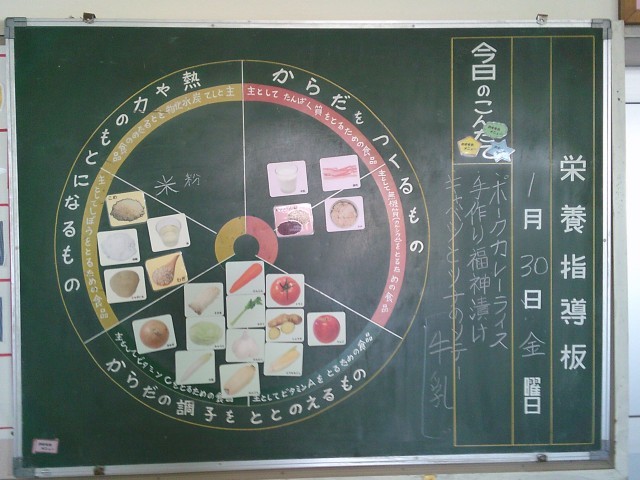 栄養指導板
1月30日金曜日
今日のこんだて
ポークカレーライス
手作り福神漬け
キャベツとツナのソテー
牛乳
からだをつくるもの
主としてたんぱく質をとるための食品
主として無機質
とるための食品
熱や力のもとになるもの
主として炭水化物をとるための食品
主としてしぼうをとるための食品
米粉
からだの調子をととのえるもの
主としてビタミンCをとるための食品
主としてビタミンAをとるための食品